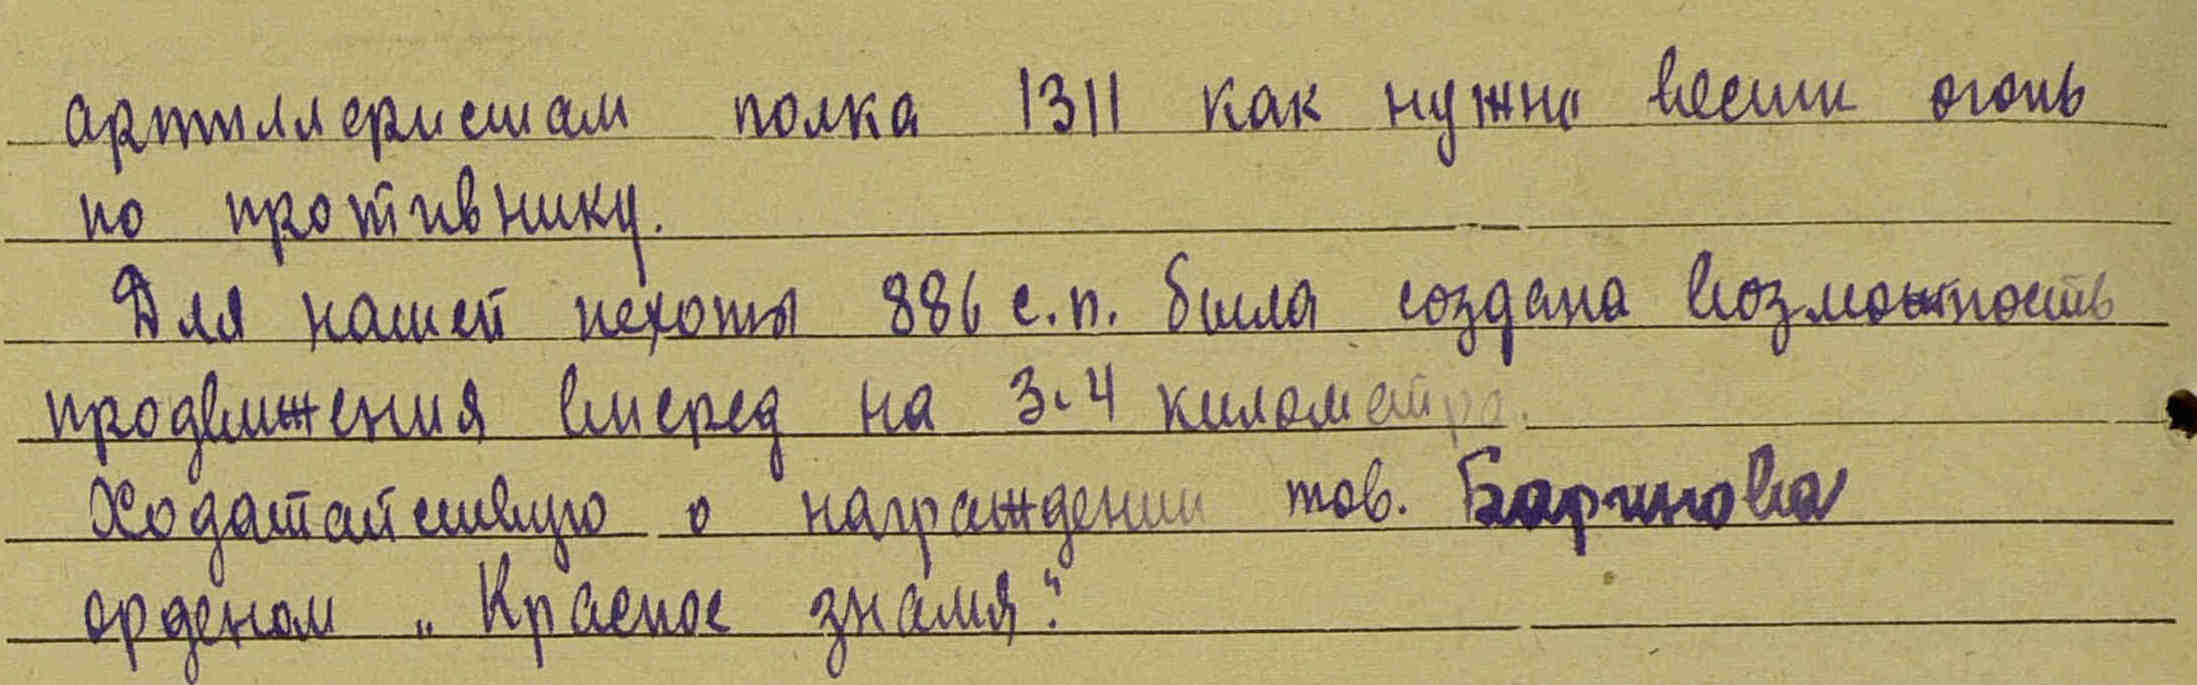 артиллеристам полка 1311 как нужно вести огонь
по противнику.
Для нашей пехоты 886 с.п. была создана возможность
продвижения вперед на 3-4 километра.
Ходатайствую о награждении тов. Баринова
орденом „Красное знамя".